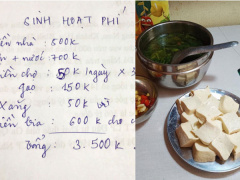 SINH HOẠT PHÍ
iền nhà : 500k
n + nước 700k
iền chợ : 50k /ngày × 3
gạo : 150k
Xăng : 50k
iền bia : 600k cho
Tổng 3.500k